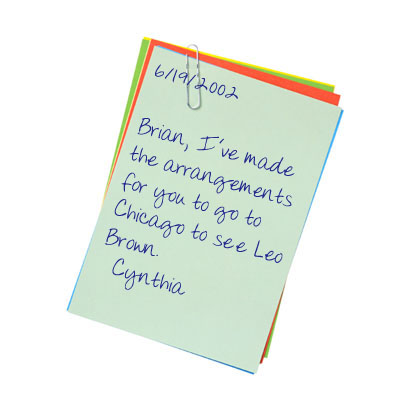 6/19/2002
Brian, I've made
the arrangements
for you to go to
Chicago to see Leo
Brown.
Cynthia